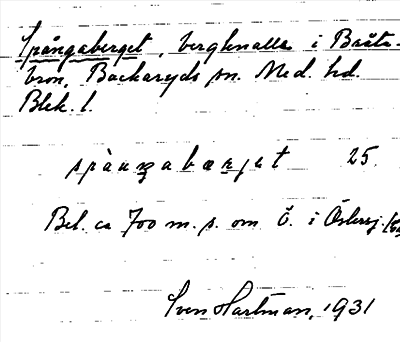 Spångaberget, bergknalle i Bråta-
bron, Backaryds sn. Med. hd.
Blek. l.
spåŋabærjet 25.
Bel. ca 700 m. s. om Ö. i Östersj.
Sven Hartman, 1931